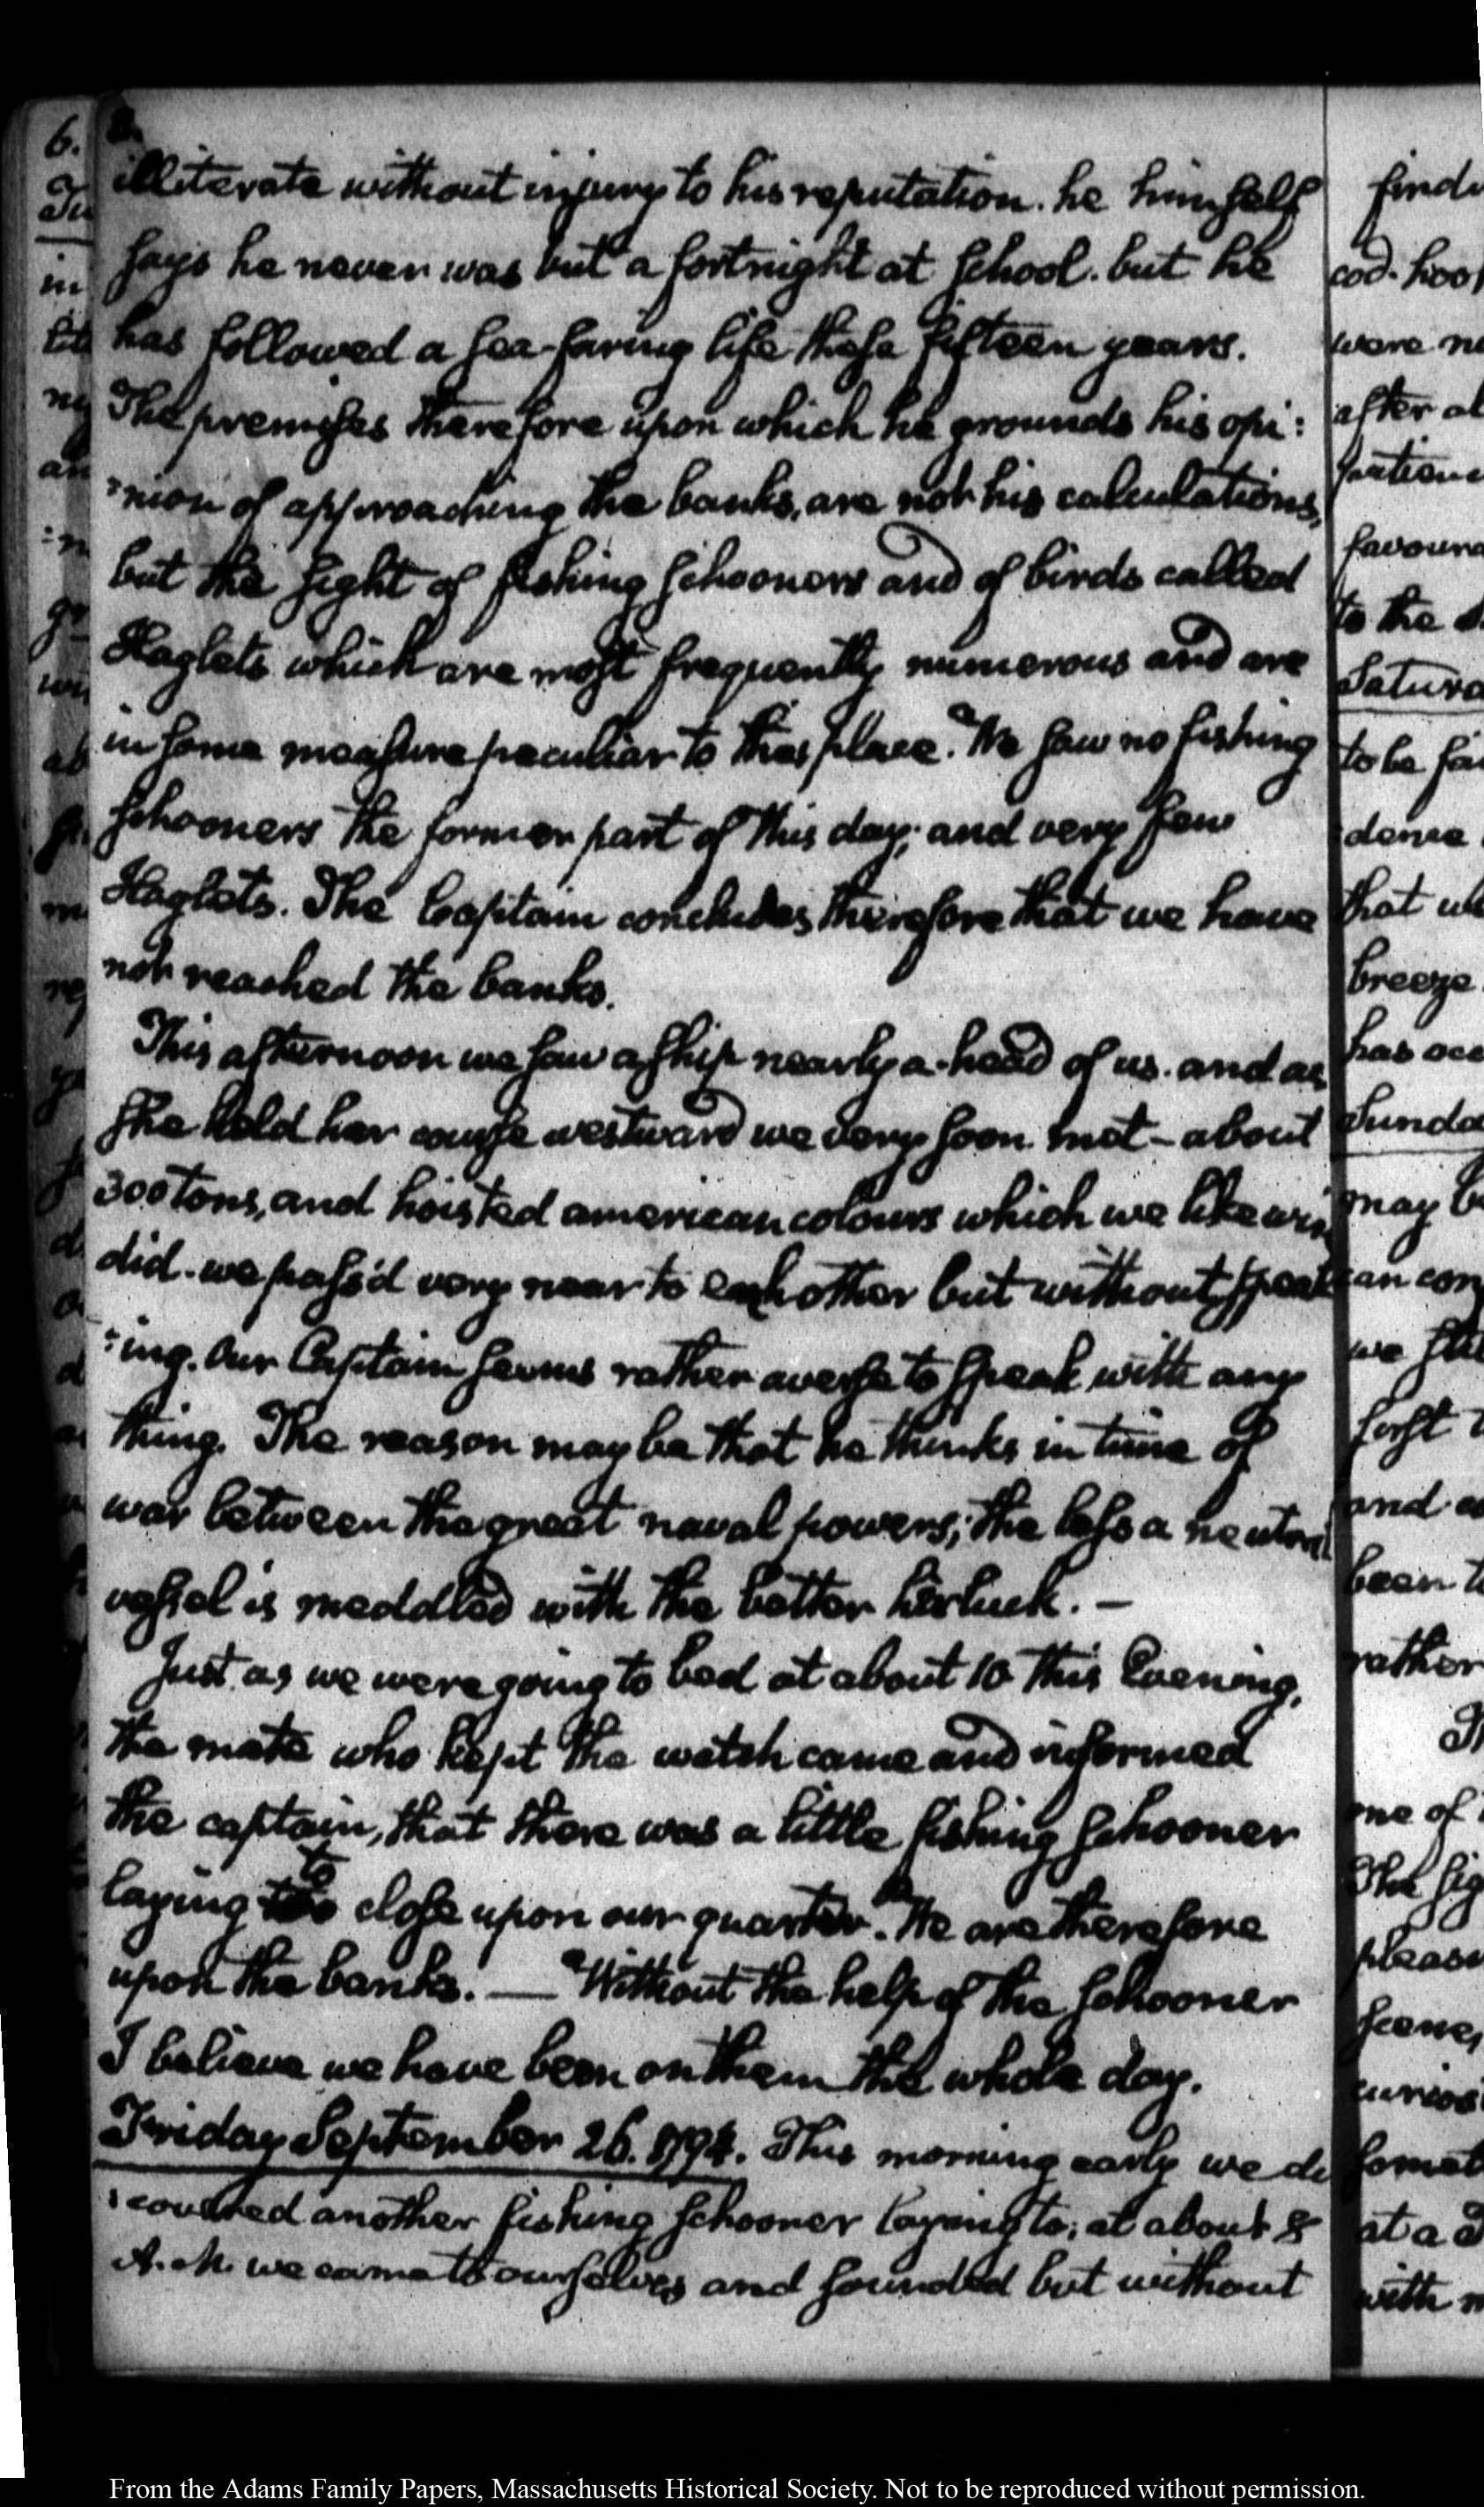 8.
illiterate without injury to his reputation. he himself
says he never was but a fortnight at school. but he
has followed a sea-faring life these fifteen years.
The premises therefore upon which he grounds his opi:
:nion of approaching the banks, are not his calculations,
but the sight of fishing schooners and of birds called
Haglets which are most frequently numerous and are
in some measure peculiar to this place. We saw no fishing
schooners the former part of this day; and very few
Haglets. The Captain concludes therefore that we have
not reached the banks.
This afternoon we saw a ship nearly a-head of us. and as
she held her course westward we very soon met - about
300 tons, and hoisted american colours which we likewise
did. we pass'd very near to each other but without speak
:ing. Our Captain seems rather averse to speak with any
thing. The reason may be that he thinks in time of
war between the great naval powers; the less a neutral
vessel is meddled with the better her luck. —
Just as we were going to bed at about 10 this Evening,
the mate who kept the watch came and informed
the captain, that there was a little fishing schooner
laying to close upon our quarter. We are therefore
upon the banks. — Without the help of the schooner
I believe we have been on them the whole day.
Friday September 26. 1794. This morning early we di
:covered another fishing schooner laying to; at about 8
A.M. we came to ourselves and sounded but without
From the Adams Family Papers, Massachusetts Historical Society. Not to be reproduced without permission.